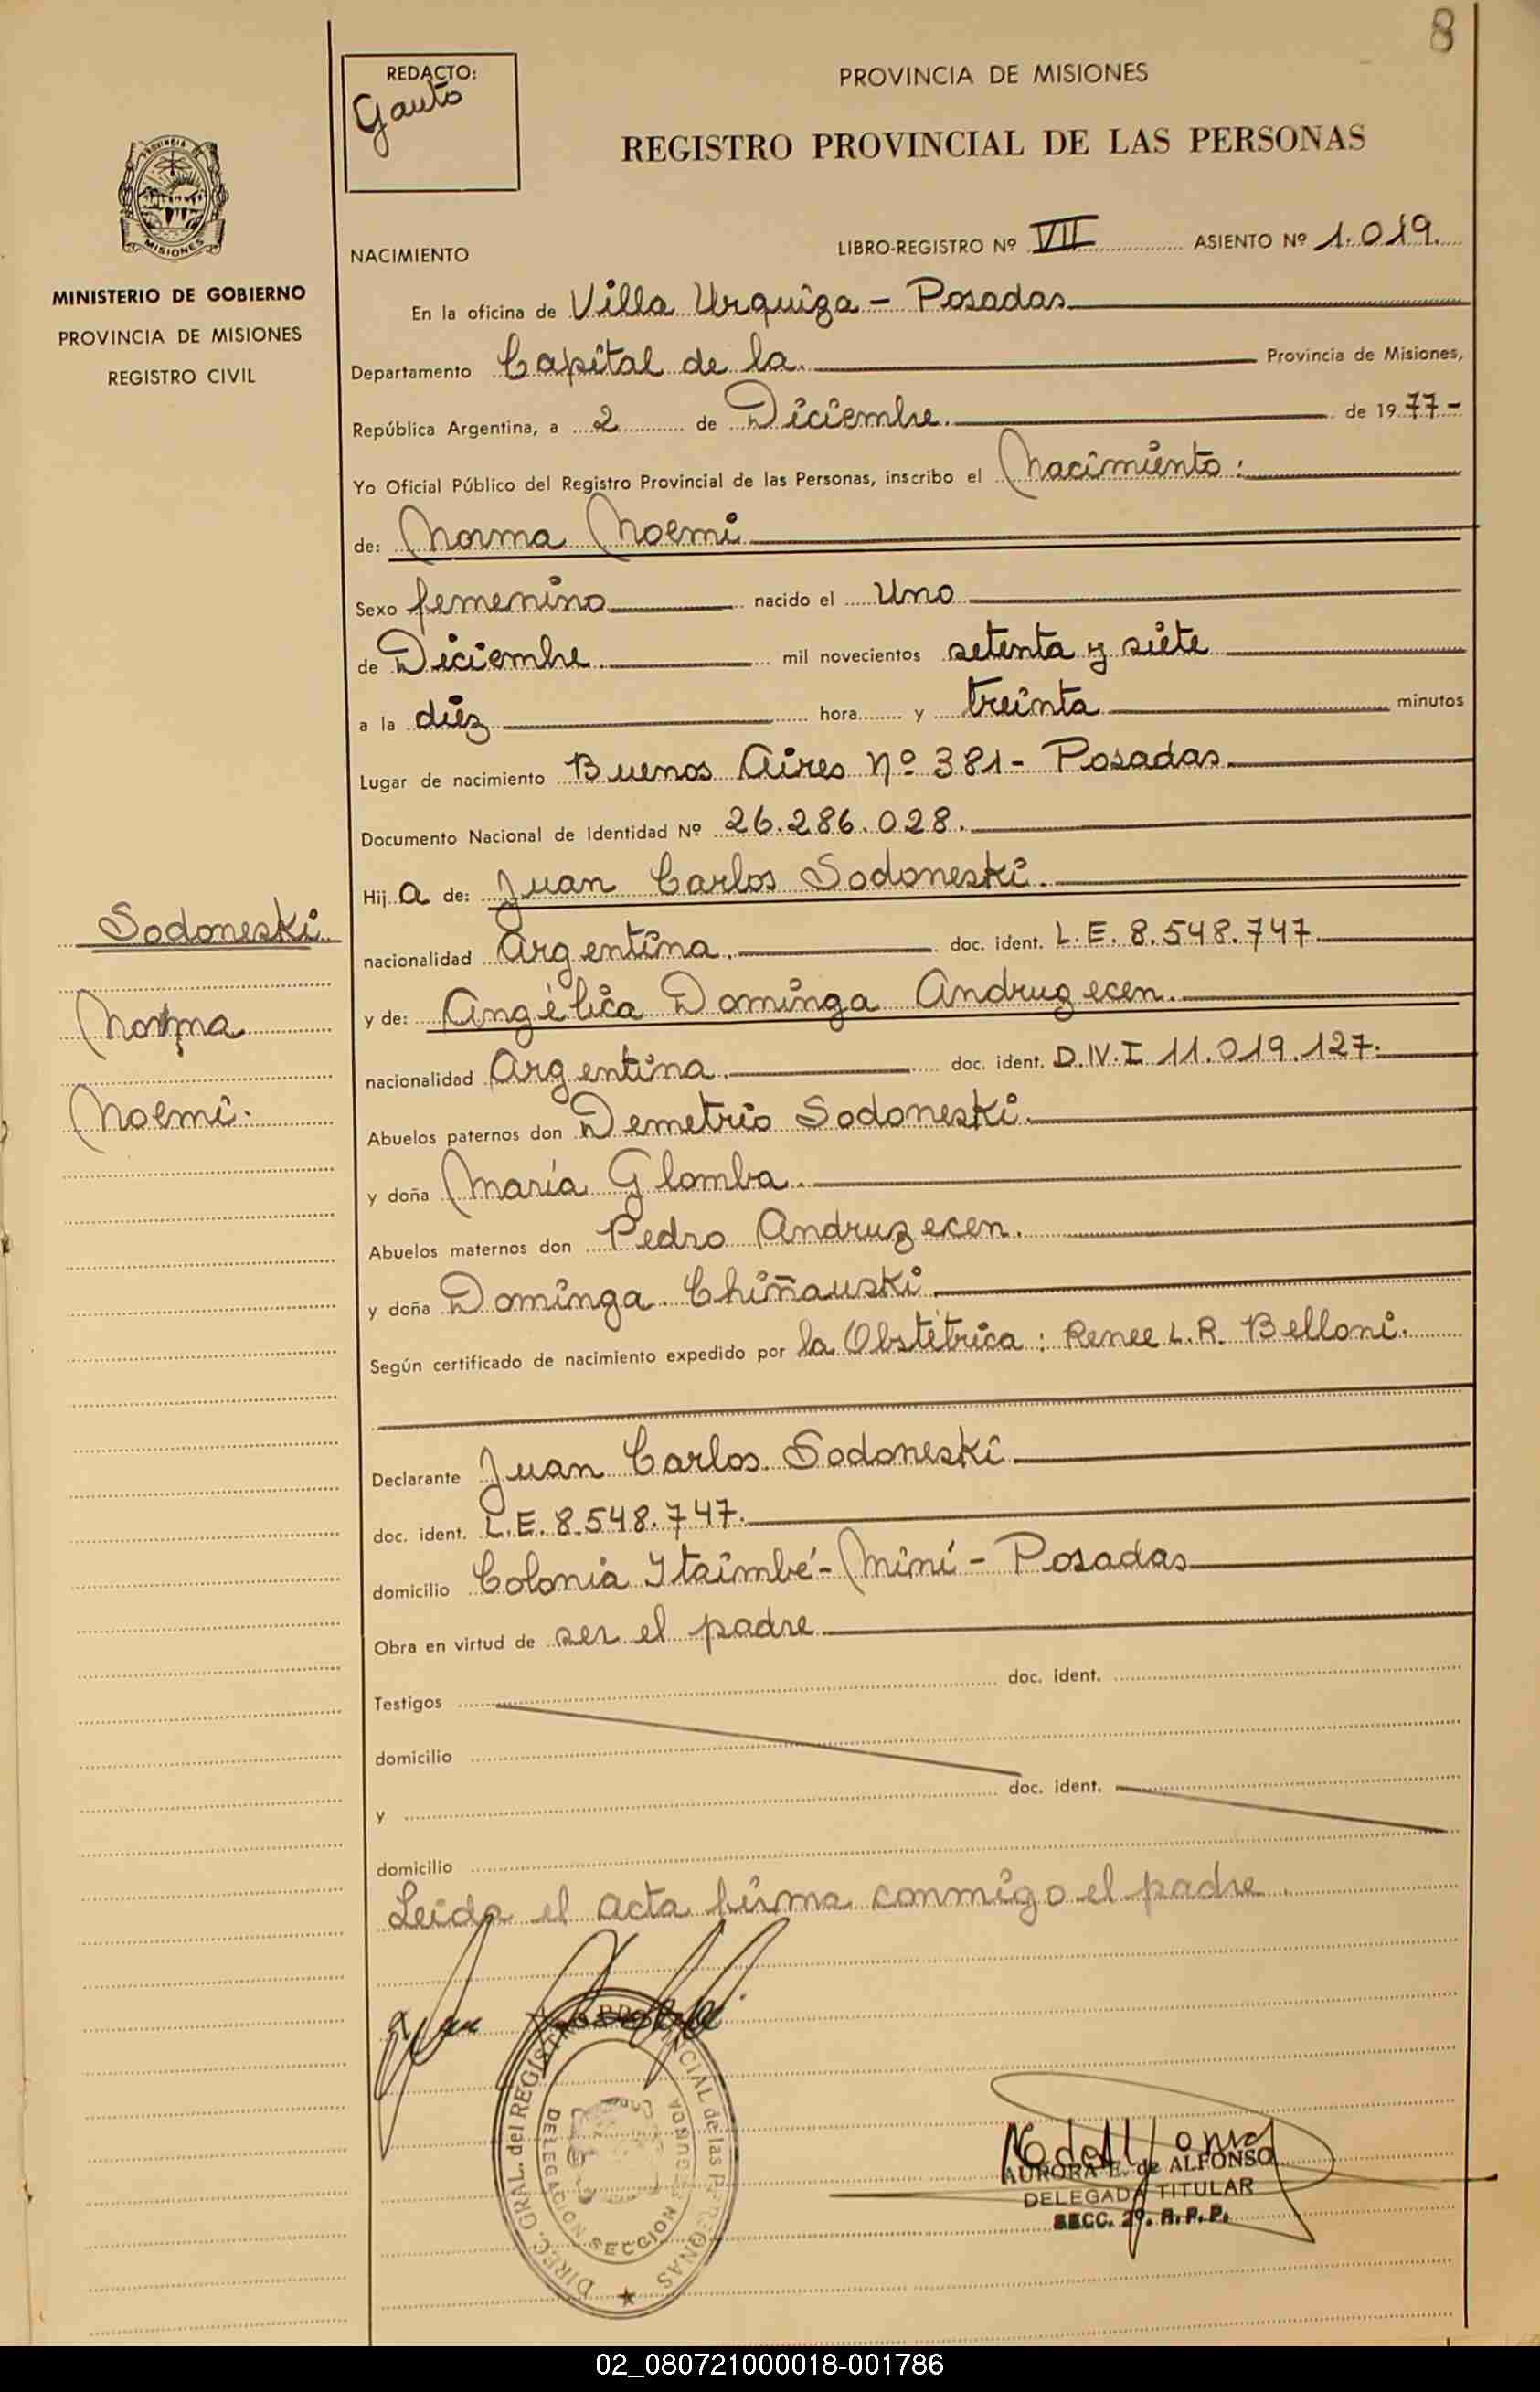 8
REDACTO:
Gauto
PROVINCIA DE MISIONES
REGISTRO PROVINCIAL DE LAS PERSONAS
MISIONES
MINISTERIO DE GOBIERNO
PROVINCIA DE MISIONES
REGISTRO CIVIL
NACIMIENTO
LIBRO-REGISTRO Nº VII ASIENTO Nº 1.019.
En la oficina de Villa Urquiza - Posadas
Departamento Capital de la Provincia de Misiones,
República Argentina, a 2 de Diciembre de 1977-
Yo Oficial Público del Registro Provincial de las Personas, inscribo el Nacimiento:
de: Norma Noemi
Sexo femenino nacido el Uno
de Diciembre mil novecientos setenta y siete
a la diez hora y treinta minutos
Lugar de nacimiento Buenos Aires Nº 381- Posadas
Documento Nacional de Identidad Nº 26.286.028.
Hija de: Juan Carlos Sodoneski.
nacionalidad Argentina. doc. ident. L.E. 8.548.747.
y de: Angélica Dominga Andruzecen.
nacionalidad Argentina. doc. ident. D.IV.I 11.019.127.
Abuelos paternos don Demetrio Sodoneski.
y doña María Glomba.
Abuelos maternos don Pedro Andruzecen.
y doña Dominga Chiñauski
Según certificado de nacimiento expedido por la Obstétrica: Renee L.R. Belloni.
Declarante Juan Carlos Sodoneski
doc. ident. L.E. 8.548.747.
domicilio Colonia Itaimbé-Miní - Posadas
Obra en virtud de ser el padre
Testigos doc. ident.
domicilio
y doc. ident.
domicilio
Leida el acta firma conmigo el padre
Sodoneski
Norma
Noemi.
DIREC. GRAL. del REGISTRO PROVINCIAL de las PERSONAS
DELEGACION SECCION
AURORA E. de ALFONSO
DELEGADA TITULAR
SECC. 2º. R.P.P.
02_080721000018-001786